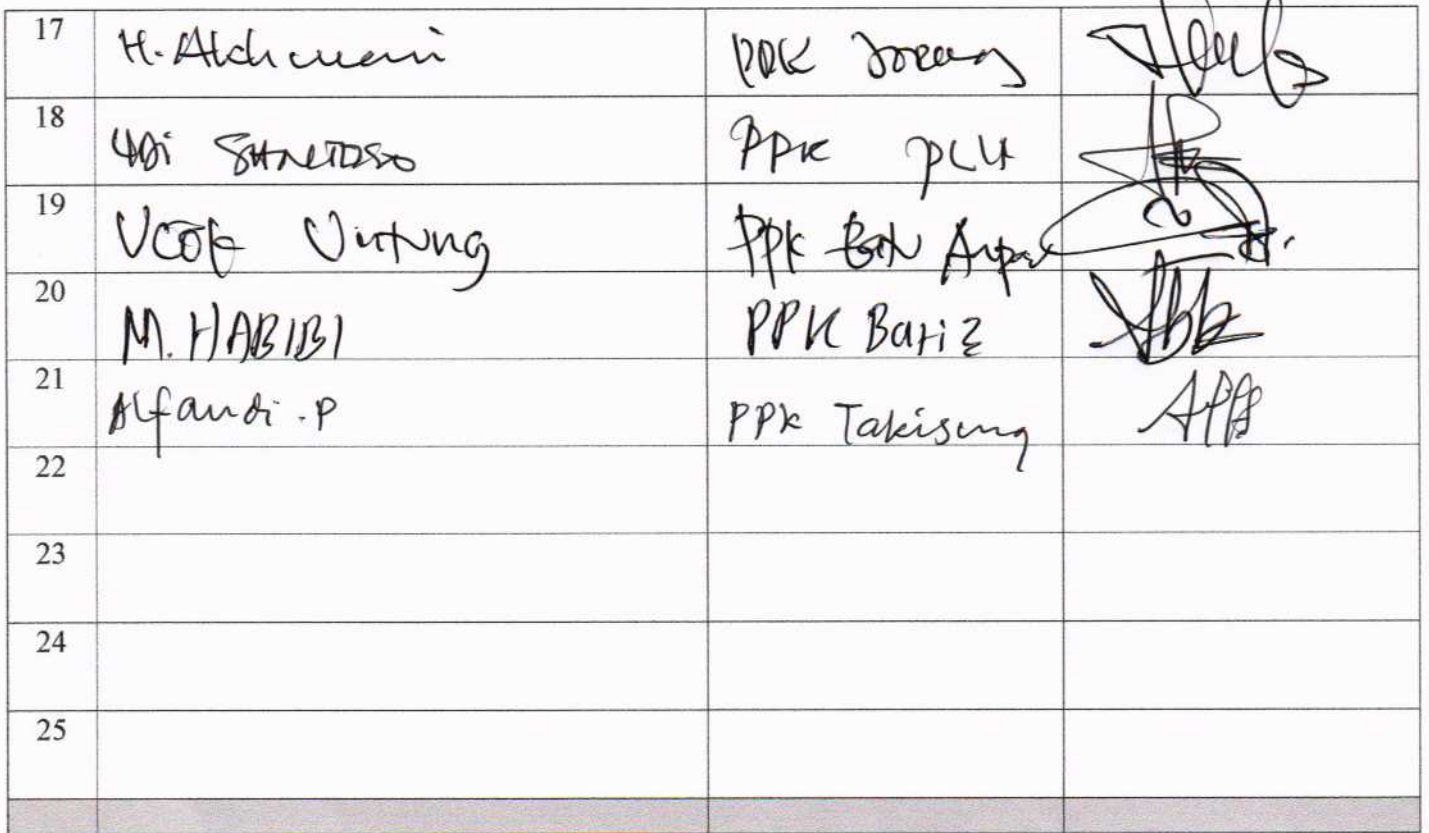 17 H. PPK Jorong
18 Adi SANTOSO PPK PLH
19 Ucok Untung PPK
20 M. HABIBI PPK Bati 2
21 Alfandi .P PPK Takisung
22
23
24
25